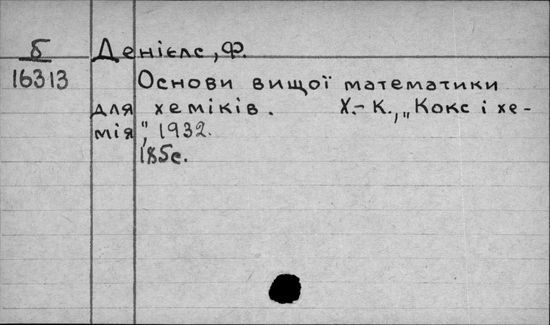 б Денієлс, Ф.
16313 Основи вищої математики
для хеміків. Х.-К., „Кокс і хе-
мія", 1932.
185с.